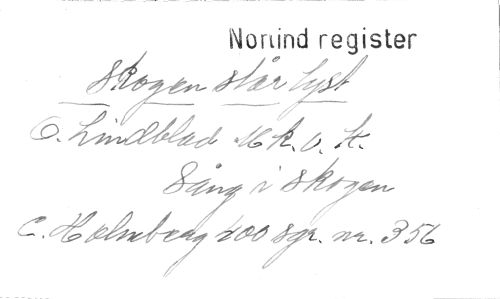 Norlind register
Skogen står tyst
O. Lindblad Mk. o. tr.
Sång i skogen
C. Holmberg 200 sgr. nr. 356